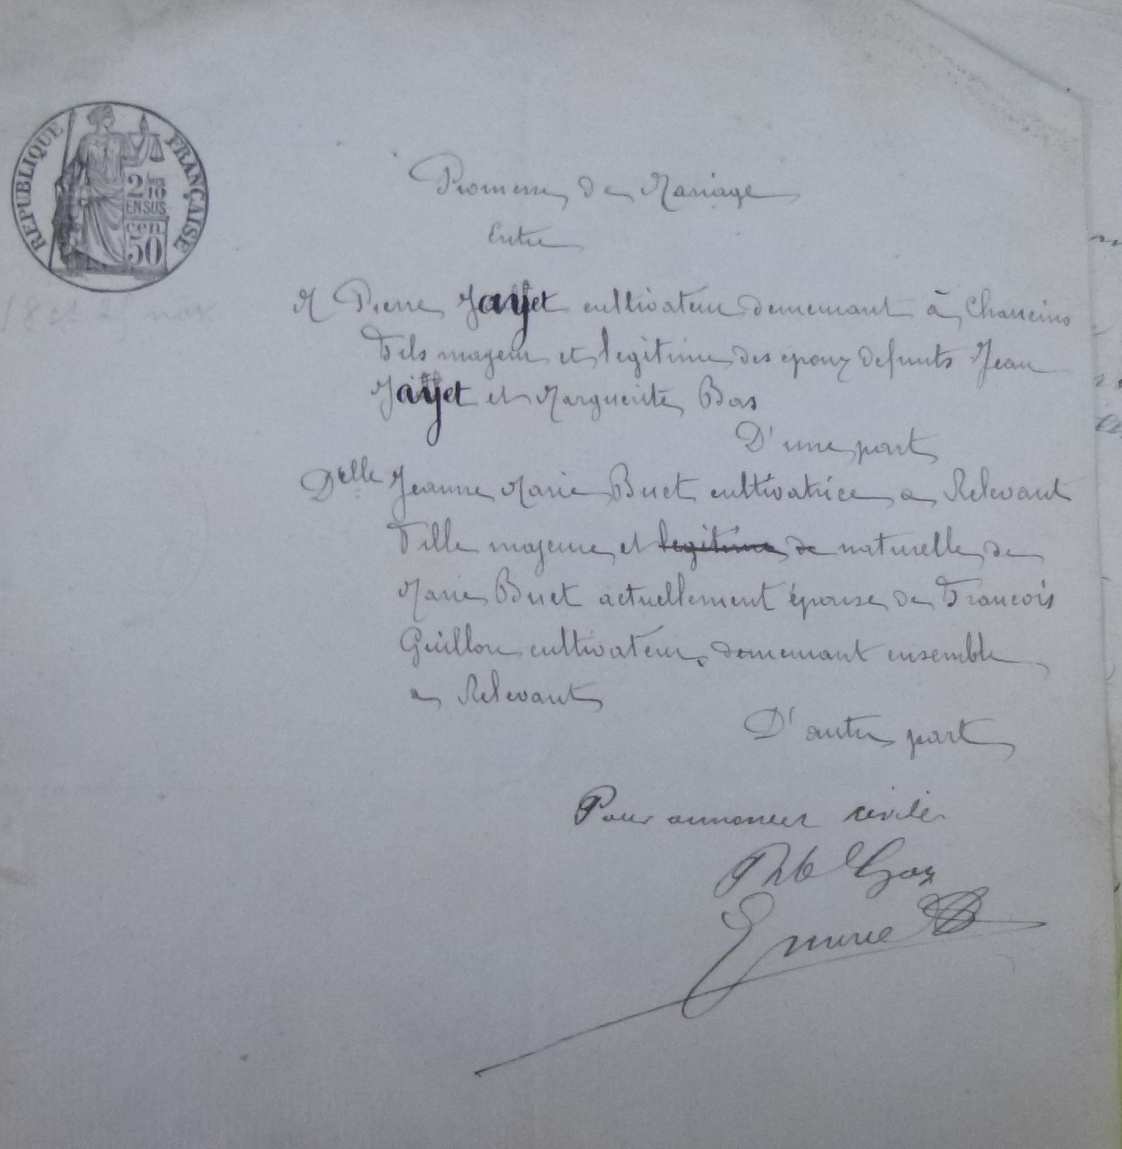 RÉPUBLIQUE FRANÇAISE
2/10
EN SUS
50 cen
Promesse de Mariage
Entre
M Pierre Jayet cultivateur demeurant à
Fils majeur et legitime des epoux defunts Jean
Jayet et Marguerite Bas
D'une part
Delle Jeanne Marie Buet cultivatrice a Relevant
Fille majeure et legitime de naturelle de
Marie Buet actuellement épouse de Francois
Guillon cultivateur demeurant ensemble
a Relevant
D'autre part
Pour annonces civiles